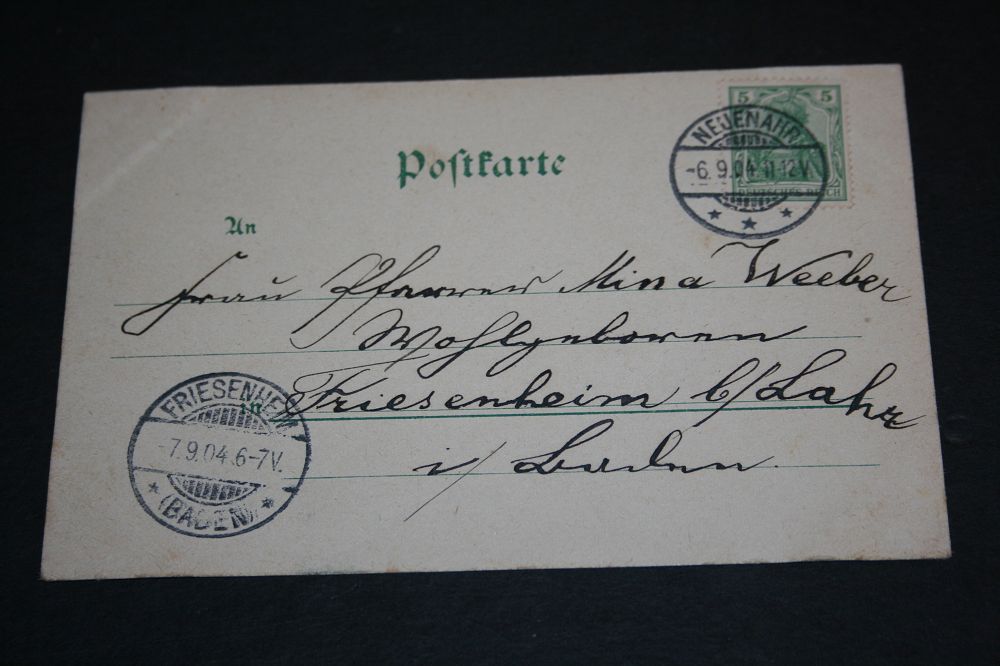 5 5
DEUTSCHES REICH
NEUENAHR
-6.9.04.11-12V.
★ ★ ★
Postkarte
An
Frau Pfarrer Mina Weeber
Wohlgeboren
in Friesenheim b/Lahr
i/Baden.
FRIESENHEIM
-7.9.04.6-7V.
★ (BADEN) ★